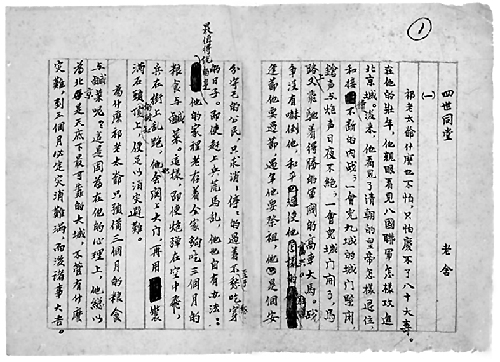 ①
四世同堂 老舍
(一)
祁老太爺什麼也不怕,只怕慶不了八十大壽。
在他的壯年,他親眼看見八國聯軍怎樣攻進
北京城。後來,他看見了清朝的皇帝怎樣退位,
和接續不斷的內戰;一會兒九城的城門緊閉,
鎗聲與炮聲日夜不絕;一會兒城門開了,馬
路上又飛馳著得勝的軍閥的高車大馬。戰
爭沒有嚇倒他,和平使他高興。
逢節他要過節,過年他要祭祖,他是個安
分守己的公民,只求消消停停的過著不至於愁吃愁穿
的日子。即使趕上兵荒馬亂,他也自有辦法:
最值得說的是他的家裏老存着全家夠吃三個月的
糧食與鹹菜。這樣,即使炮彈在空中飛,
兵在街上亂跑,他也會關上大門,再用裝
滿石頭的破缸頂上,便足以消災避難。
為什麼祁老太爺只預備三個月的糧食
與鹹菜呢?這是因為在他的心理上,他總以
為北平是天底下最可靠的大城,不管有什麼
災難,到三個月必定災消難滿,而後諸事大吉。